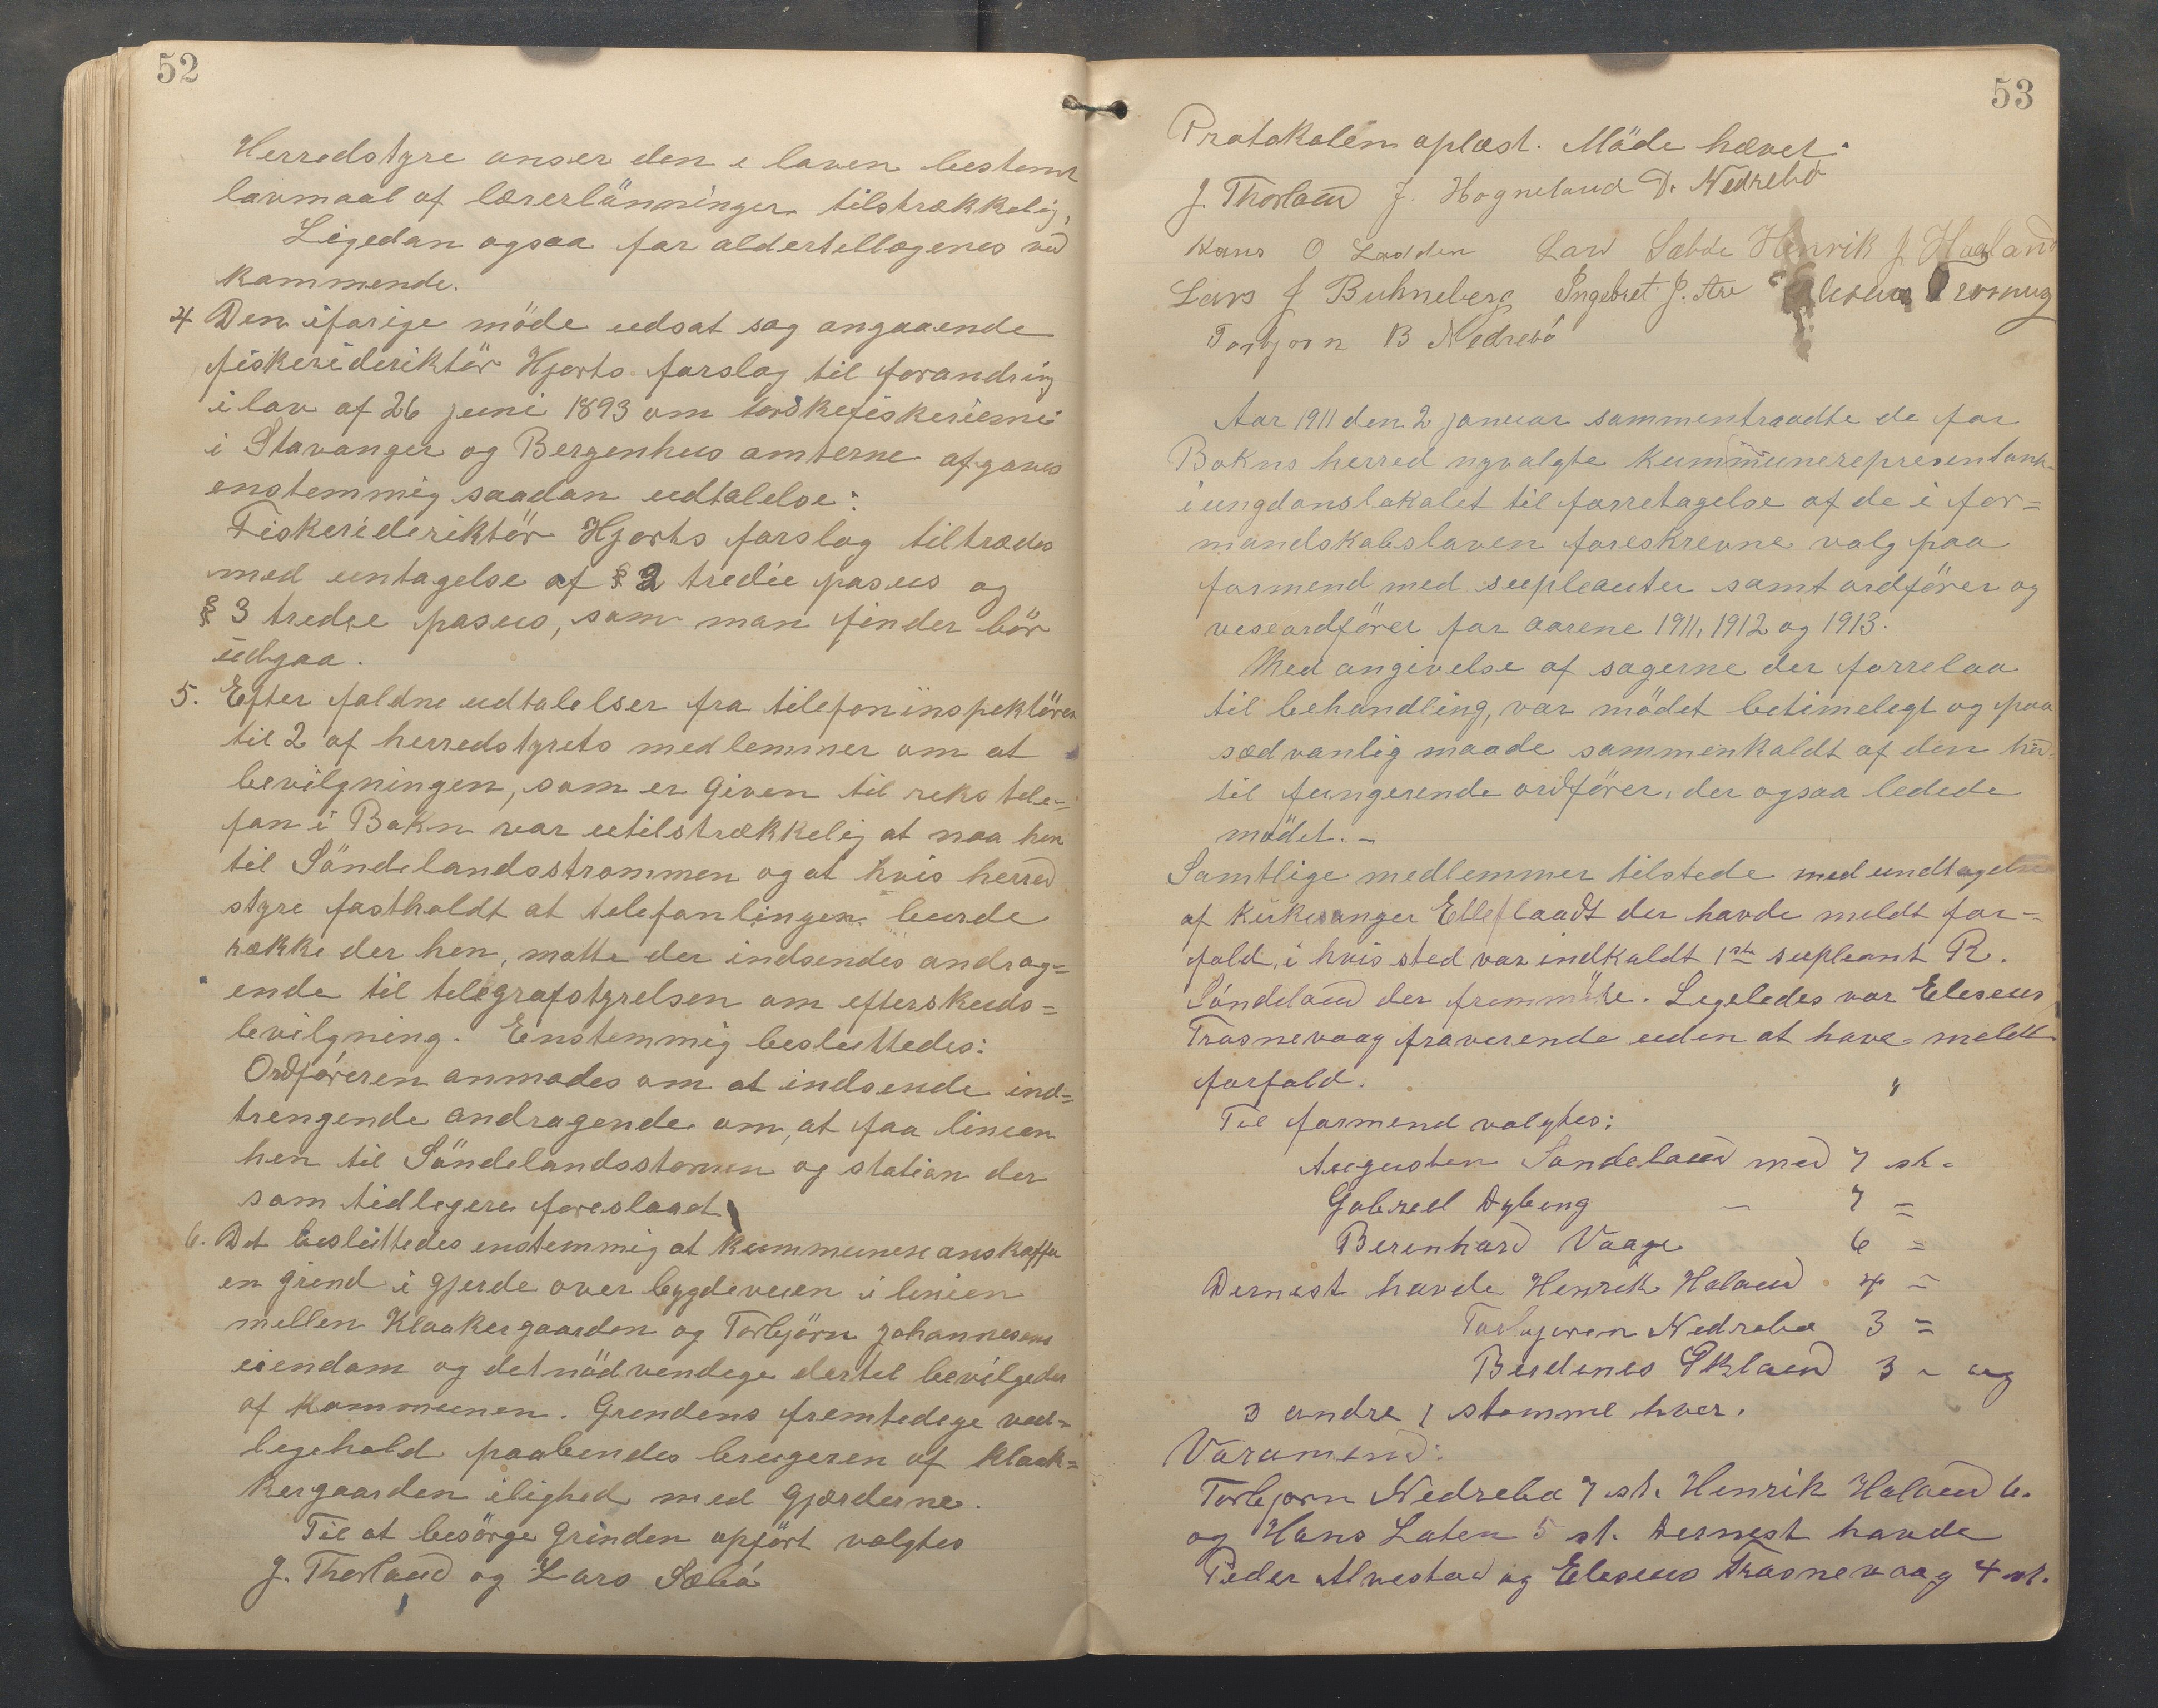 52
Herredstyre anser den e loven bestemt
lavmaal af lærerlönninger tilstrækkelig,
Ligedan ogsaa for alderstellægenes ved
kommende.
4 Den iforige möde udsat sag angaaende
fiskeridirektör Hjorts forslag til forandring
i lov af 26 juni 1893 om torskefiskerierne
i Stavanger og Bergenhus amterne afgaves
enstemmig saadan udtalelse:
Fiskerideriktör Hjorts forslag tiltrædes
med untagelse af § 2 tredie pasus og
§ 3 tredie pasus, som man finder bör
udgaa.
5. Efter faldne udtalelser fra telefoninspektören
til 2 af herredstyrets medlemmer om at
bevilgningen, som er given til riks tele-
fon i Bokn var utilstrækkelig at naa hen
til Söndelandsstrommen og at hvis herred
styre fastholdt at telefonlingen burde
række der hen, matte der indsendes andrag=
ende til telegrafstyrelsen om efterskuds=
bevilgning. Enstemmig besluttedes:
Ordföreren anmodes om at indsende ind=
trengende andragende om, at faa linien
hen til Söndelandsstomen og station der
som tidligere foreslaad.
6. Det besluttedes enstemmig at kummunen anskaffe
en grind i gjerde over bygdeveien i linien
mellen Klaakergaarden og Torbjörn Johannesens
eiendom og det nödvendege dertil bevilgedes
af kommunen. Grendens fremtedege ved=
legehold paabendes brugeren af Klaak=
kergaarden ilighed med Gjærderne.
Til at besörge Grinden opfört valgtes
J. Thorland og Lars Sæbö
53
Protokolen oplæst. Möde hævet.
J. Thorland J. Hogneland D. Nedrebö
Hans O Lodden Lars Sæbde Henrik J Haaland
Lars J Buhneberg Ingebret J. Are
Torbjorn B Nedrebö
Aar 1911 den 2 januar sammentraadte de for
Bokns herred nyvalgte kummunerepresentant
i ungdomslokalet til forretagelse af de i for=
mandskabsloven foreskrevne valg paa
formend med supleanter samt ordförer og
veseordförer for aarene 1911, 1912 og 1913.
Med angivelse af sagerne der forrelaa
til behandling, var mödet betimelegt og paa
sædvanlig maade sammenkaldt af den hid
til fungerende ordförer, der ogsaa ledede
mödet. -
Samtlige medlemmer tilstede med undtagelse
af kirkesanger Elleflaadt der havde meldt for-
fald, i hvis sted var indkaldt 1ste supleant R.
Söndeland der fremmöte. Legeledes var Eleseus
Trosnevaag fraverende uden at have meldt
forfald.
Til formend valgtes:
Augusten Sandeland med 7 st.
Gabreel Dybing - 7 =
Berenhard Vaage 6 =
Dernest havde Henrik Haland 4 =
Torbjoren Nedrebø 3 =
Berdenes Okland 3 - og
3 andre 1 stomme hver.
Varamend:
Torbjorn Nedrebø 7 st. Henrik Haland 6.
og Hans Laten 5 st. Dernest havde
Peder Alvestad og Eleseus Trosnevaag 4 st.